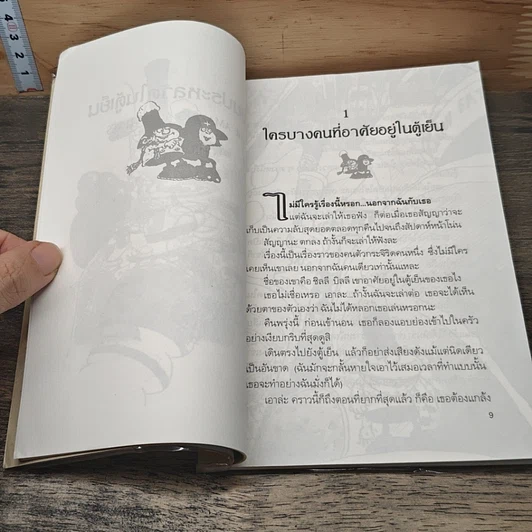 4
3
2
1
1
ใครบางคนที่อาศัยอยู่ในตู้เย็น
ไม่มีใครรู้เรื่องนี้หรอก...นอกจากฉันกับเธอ
แต่ฉันจะเล่าให้เธอฟัง ก็ต่อเมื่อเธอสัญญาว่าจะ
เก็บเป็นความลับสุดยอดตลอดทุกคืนไปจนถึงสัปดาห์หน้าโน่น
สัญญานะ ตกลง ถ้างั้นก็จะเล่าให้ฟังละ
เรื่องนี้เป็นเรื่องราวของคนตัวกระจิริดคนหนึ่ง ซึ่งไม่มีใคร
เคยเห็นเขาเลย นอกจากฉันคนเดียวเท่านั้นแหละ
ชื่อของเขาคือ ชิลลี บิลลี เขาอาศัยอยู่ในตู้เย็นของเธอไง
เธอไม่เชื่อเหรอ เอาละ...ถ้างั้นฉันจะเล่าต่อ เธอจะได้เห็น
ด้วยตาของตัวเองว่า ฉันไม่ได้หลอกเธอเล่นหรอกนะ
คืนพรุ่งนี้ ก่อนเข้านอน เธอก็ลองแอบย่องเข้าไปในครัว
อย่างเงียบกริบที่สุดดูสิ
เดินตรงไปยังตู้เย็น แล้วก็อย่าส่งเสียงดังแม้แต่นิดเดียว
เป็นอันขาด (ฉันมักจะกลั้นหายใจเอาไว้เสมอเวลาที่ทำแบบนั้น
เธอจะทำอย่างฉันมั่งก็ได้)
เอาล่ะ คราวนี้ก็ถึงตอนที่ยากที่สุดแล้ว ก็คือ เธอต้องแกล้ง
9